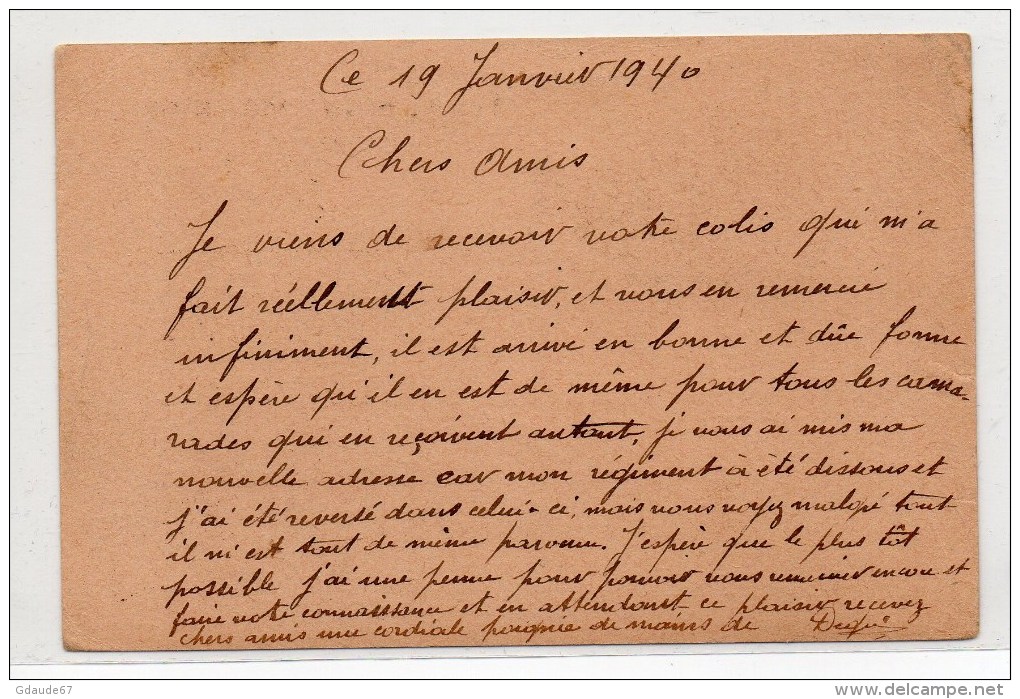 Ce 19 Janvier 1940
Chers Amis
Je viens de recevoir votre colis qui m'a
fait réellement plaisir, et vous en remercie
infiniment, il est arrivé en bonne et dûe forme
et espère qu'il en est de même pour tous les cama-
rades qui en reçoivent autant, je vous ai mis ma
nouvelle adresse car mon régiment à été dissous et
j'ai été reversé dans celui-ci, mais vous voyez malgré tout
il m'est tout de même parvenu. J'espère que le plus tôt
possible j'ai une perme pour pouvoir vous remercier encore et
faire votre connaissance et en attendant ce plaisir recevez
chers amis une cordiale poignée de mains de
Gdaude67
www.delcampe.net